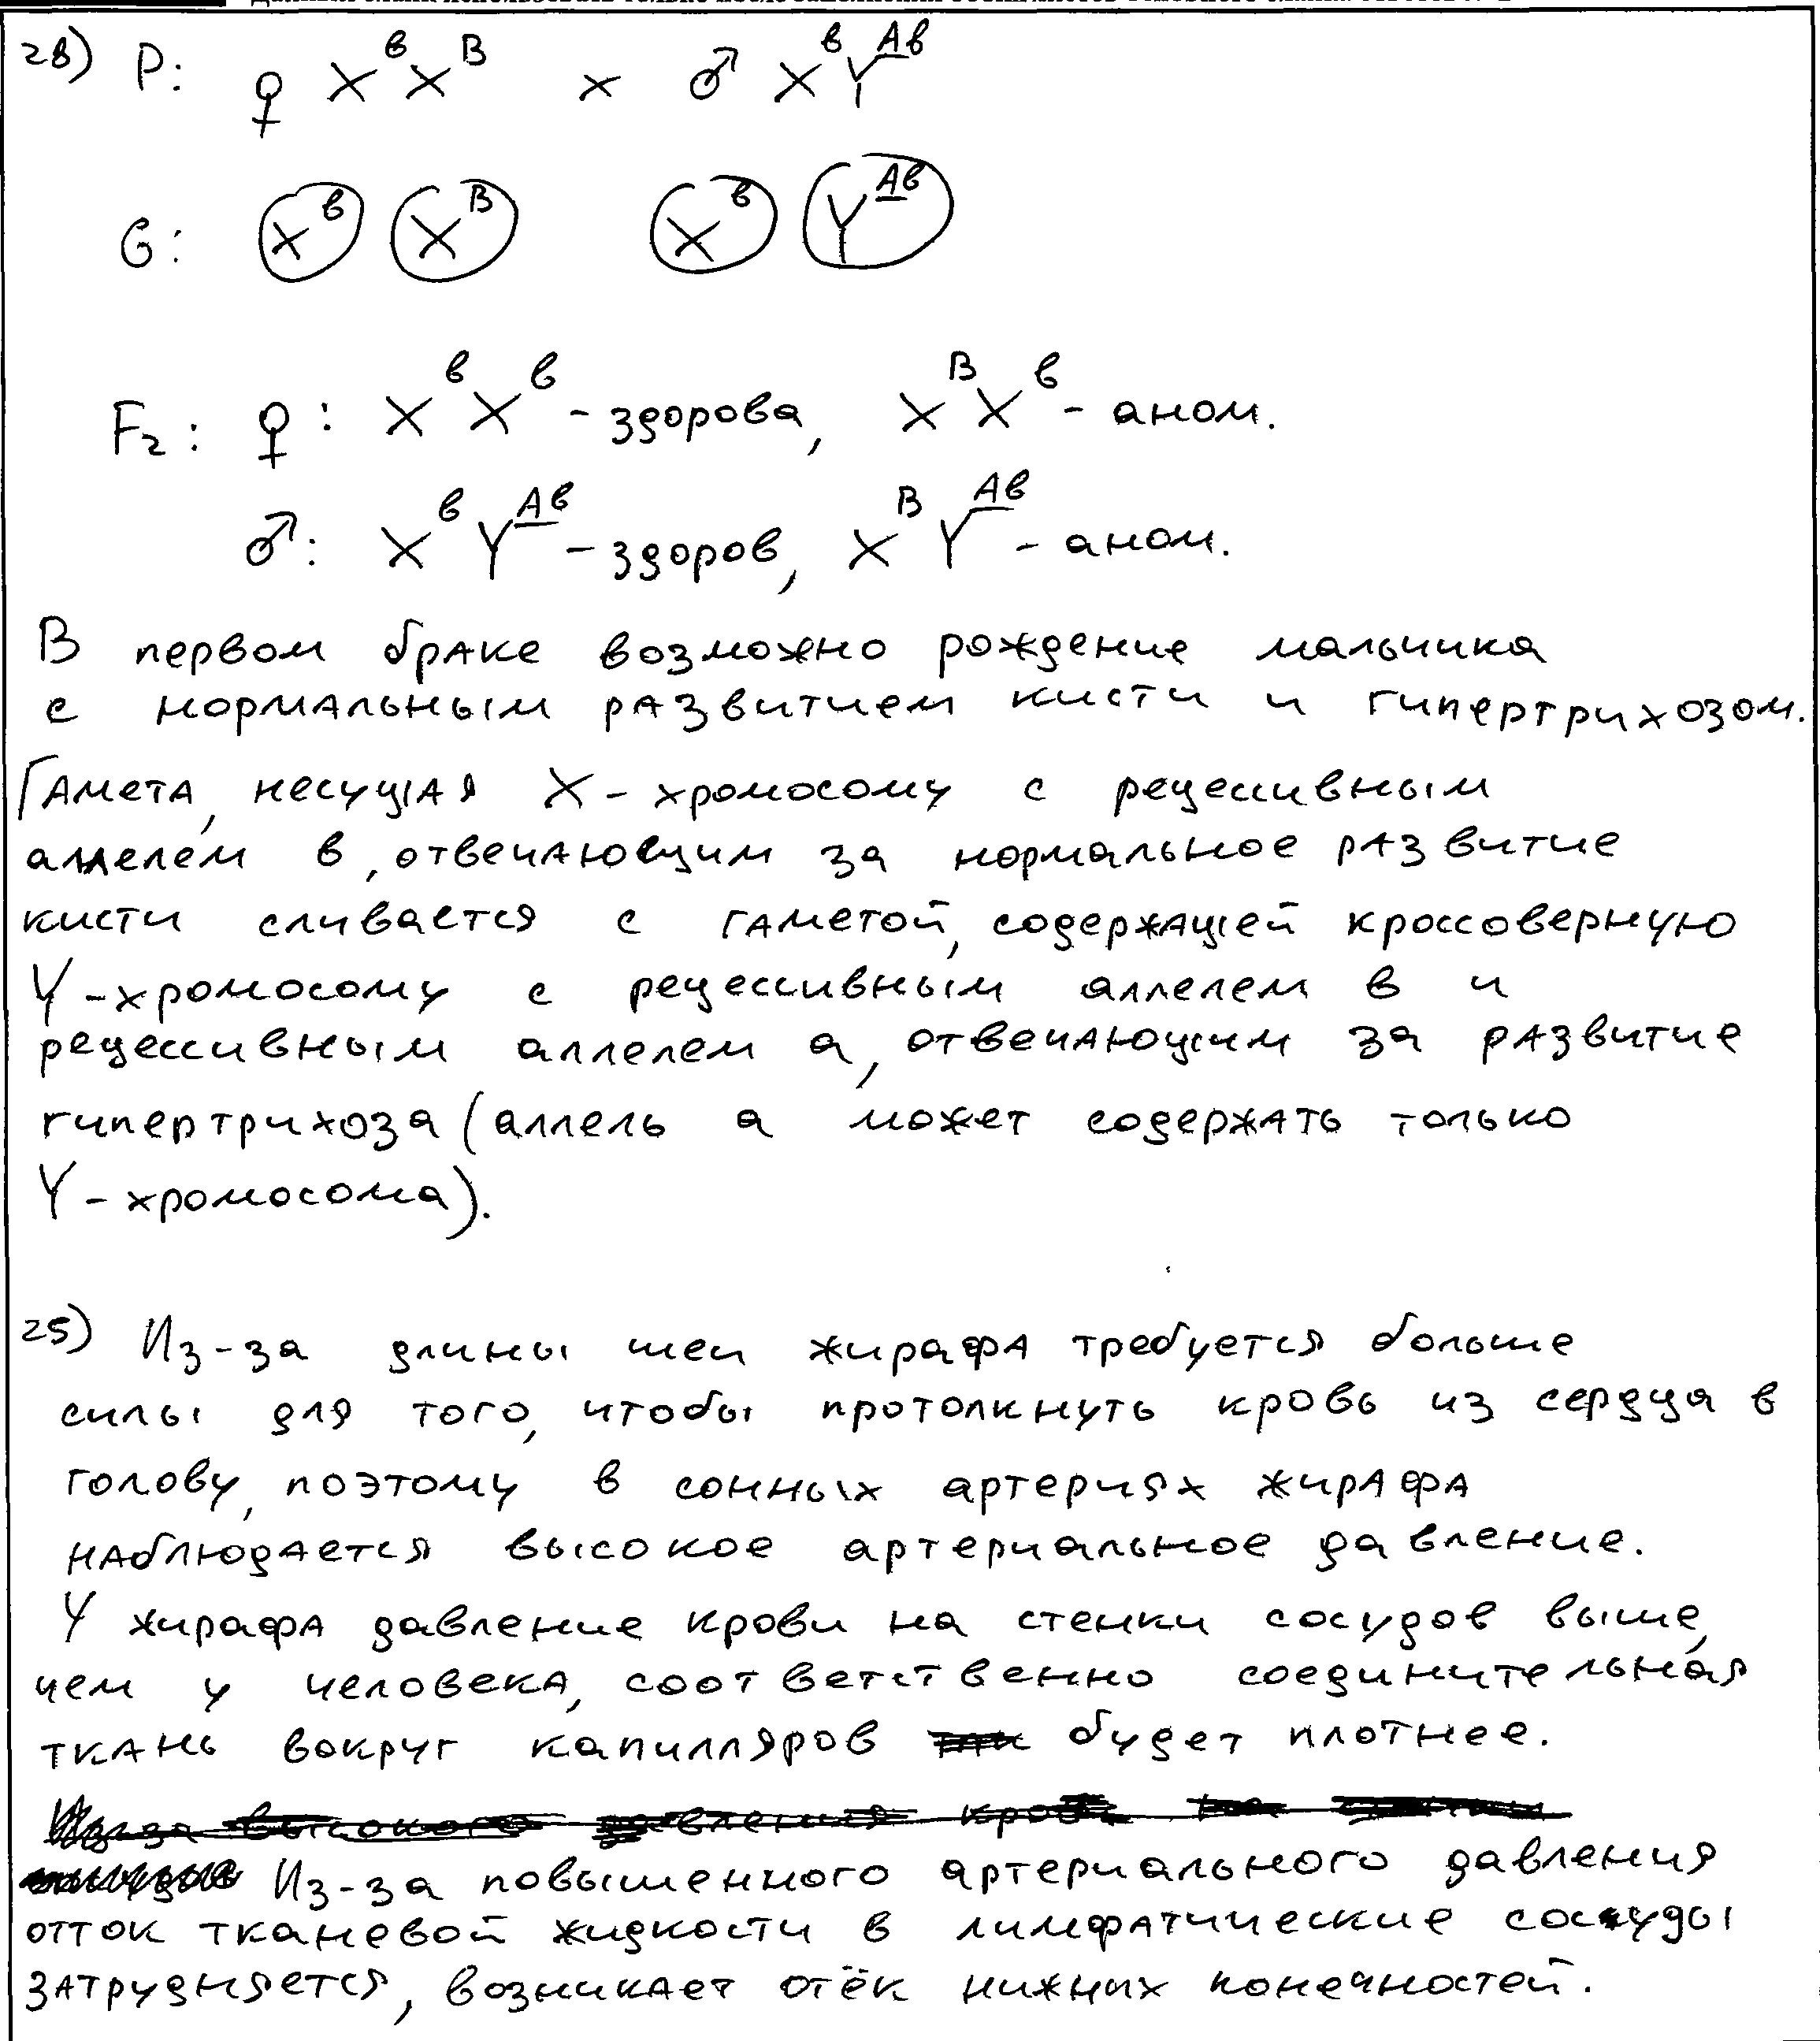 28) P: ♀ XᵇXᴮ × ♂ XᵇYᴬᵇ
G: Xᵇ Xᴮ Xᵇ Yᴬᵇ
F₂: ♀: XᵇXᵇ - здорова, XᴮXᵇ - аном.
♂: XᵇYᴬᵇ - здоров, XᴮYᴬᵇ - аном.
В первом браке возможно рождение мальчика
с нормальным развитием кисти и гипертрихозом.
Гамета, несущая X-хромосому с рецессивным
аллелем в, отвечающим за нормальное развитие
кисти сливается с гаметой, содержащей кроссоверную
Y-хромосому с рецессивным аллелем в и
рецессивным аллелем а, отвечающим за развитие
гипертрихоза (аллель а может содержать только
Y-хромосома).
25) Из-за длины шеи жирафа требуется больше
силы для того, чтобы протолкнуть кровь из сердца в
голову, поэтому в сонных артериях жирафа
наблюдается высокое артериальное давление.
У жирафа давление крови на стенки сосудов выше,
чем у человека, соответственно соединительная
ткань вокруг капилляров будет плотнее.
Из-за высокого давления
Из-за повышенного артериального давления
отток тканевой жидкости в лимфатические сосуды
затрудняется, возникает отёк нижних конечностей.